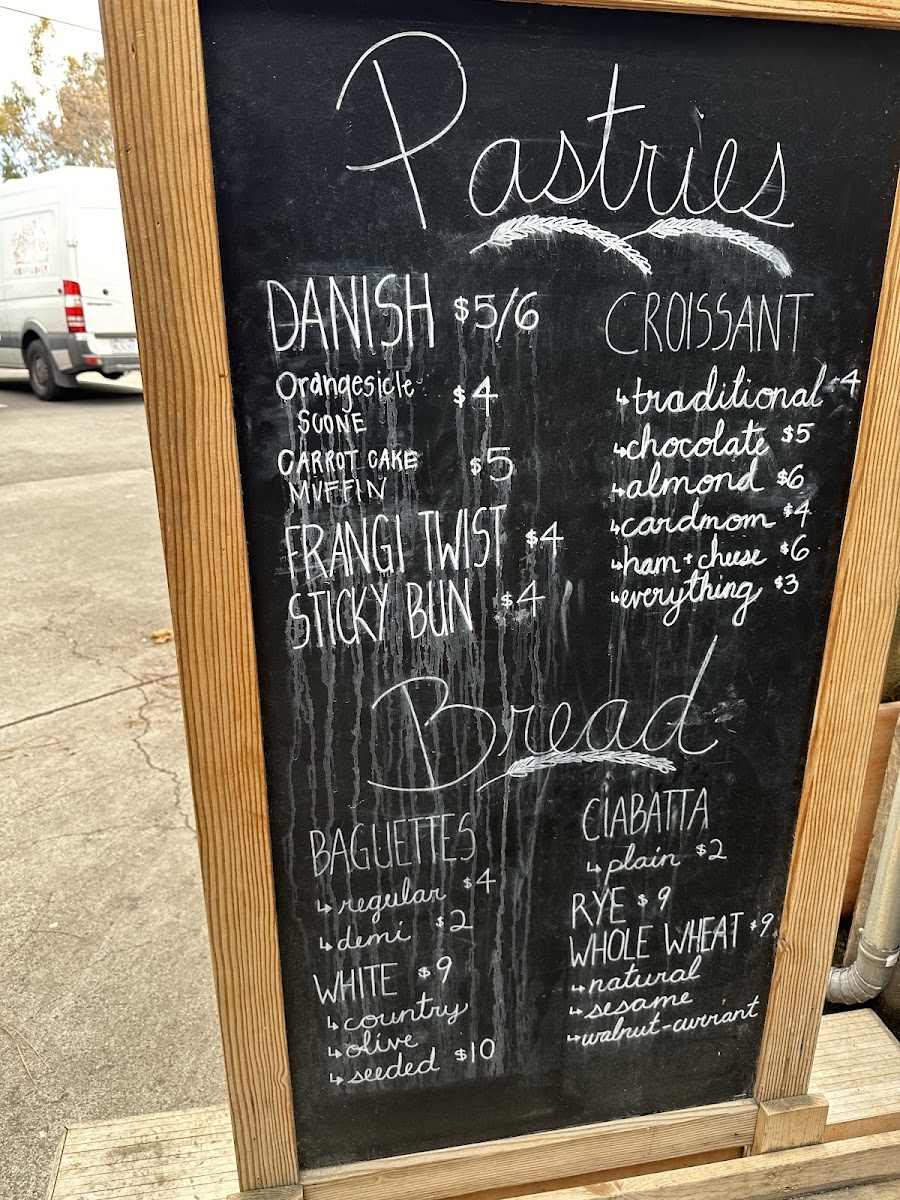 Pastries
DANISH $5/6
Orangesicle $4
SCONE
CARROT CAKE $5
MUFFIN
FRANGI TWIST $4
STICKY BUN $4
CROISSANT
↳traditional $4
↳chocolate $5
↳almond $6
↳cardmom $4
↳ham + cheese $6
↳everything $3
Bread
BAGUETTES
↳regular $4
↳demi $2
WHITE $9
↳country
↳olive
↳seeded $10
CIABATTA
↳plain $2
RYE $9
WHOLE WHEAT $9
↳natural
↳sesame
↳walnut-currant